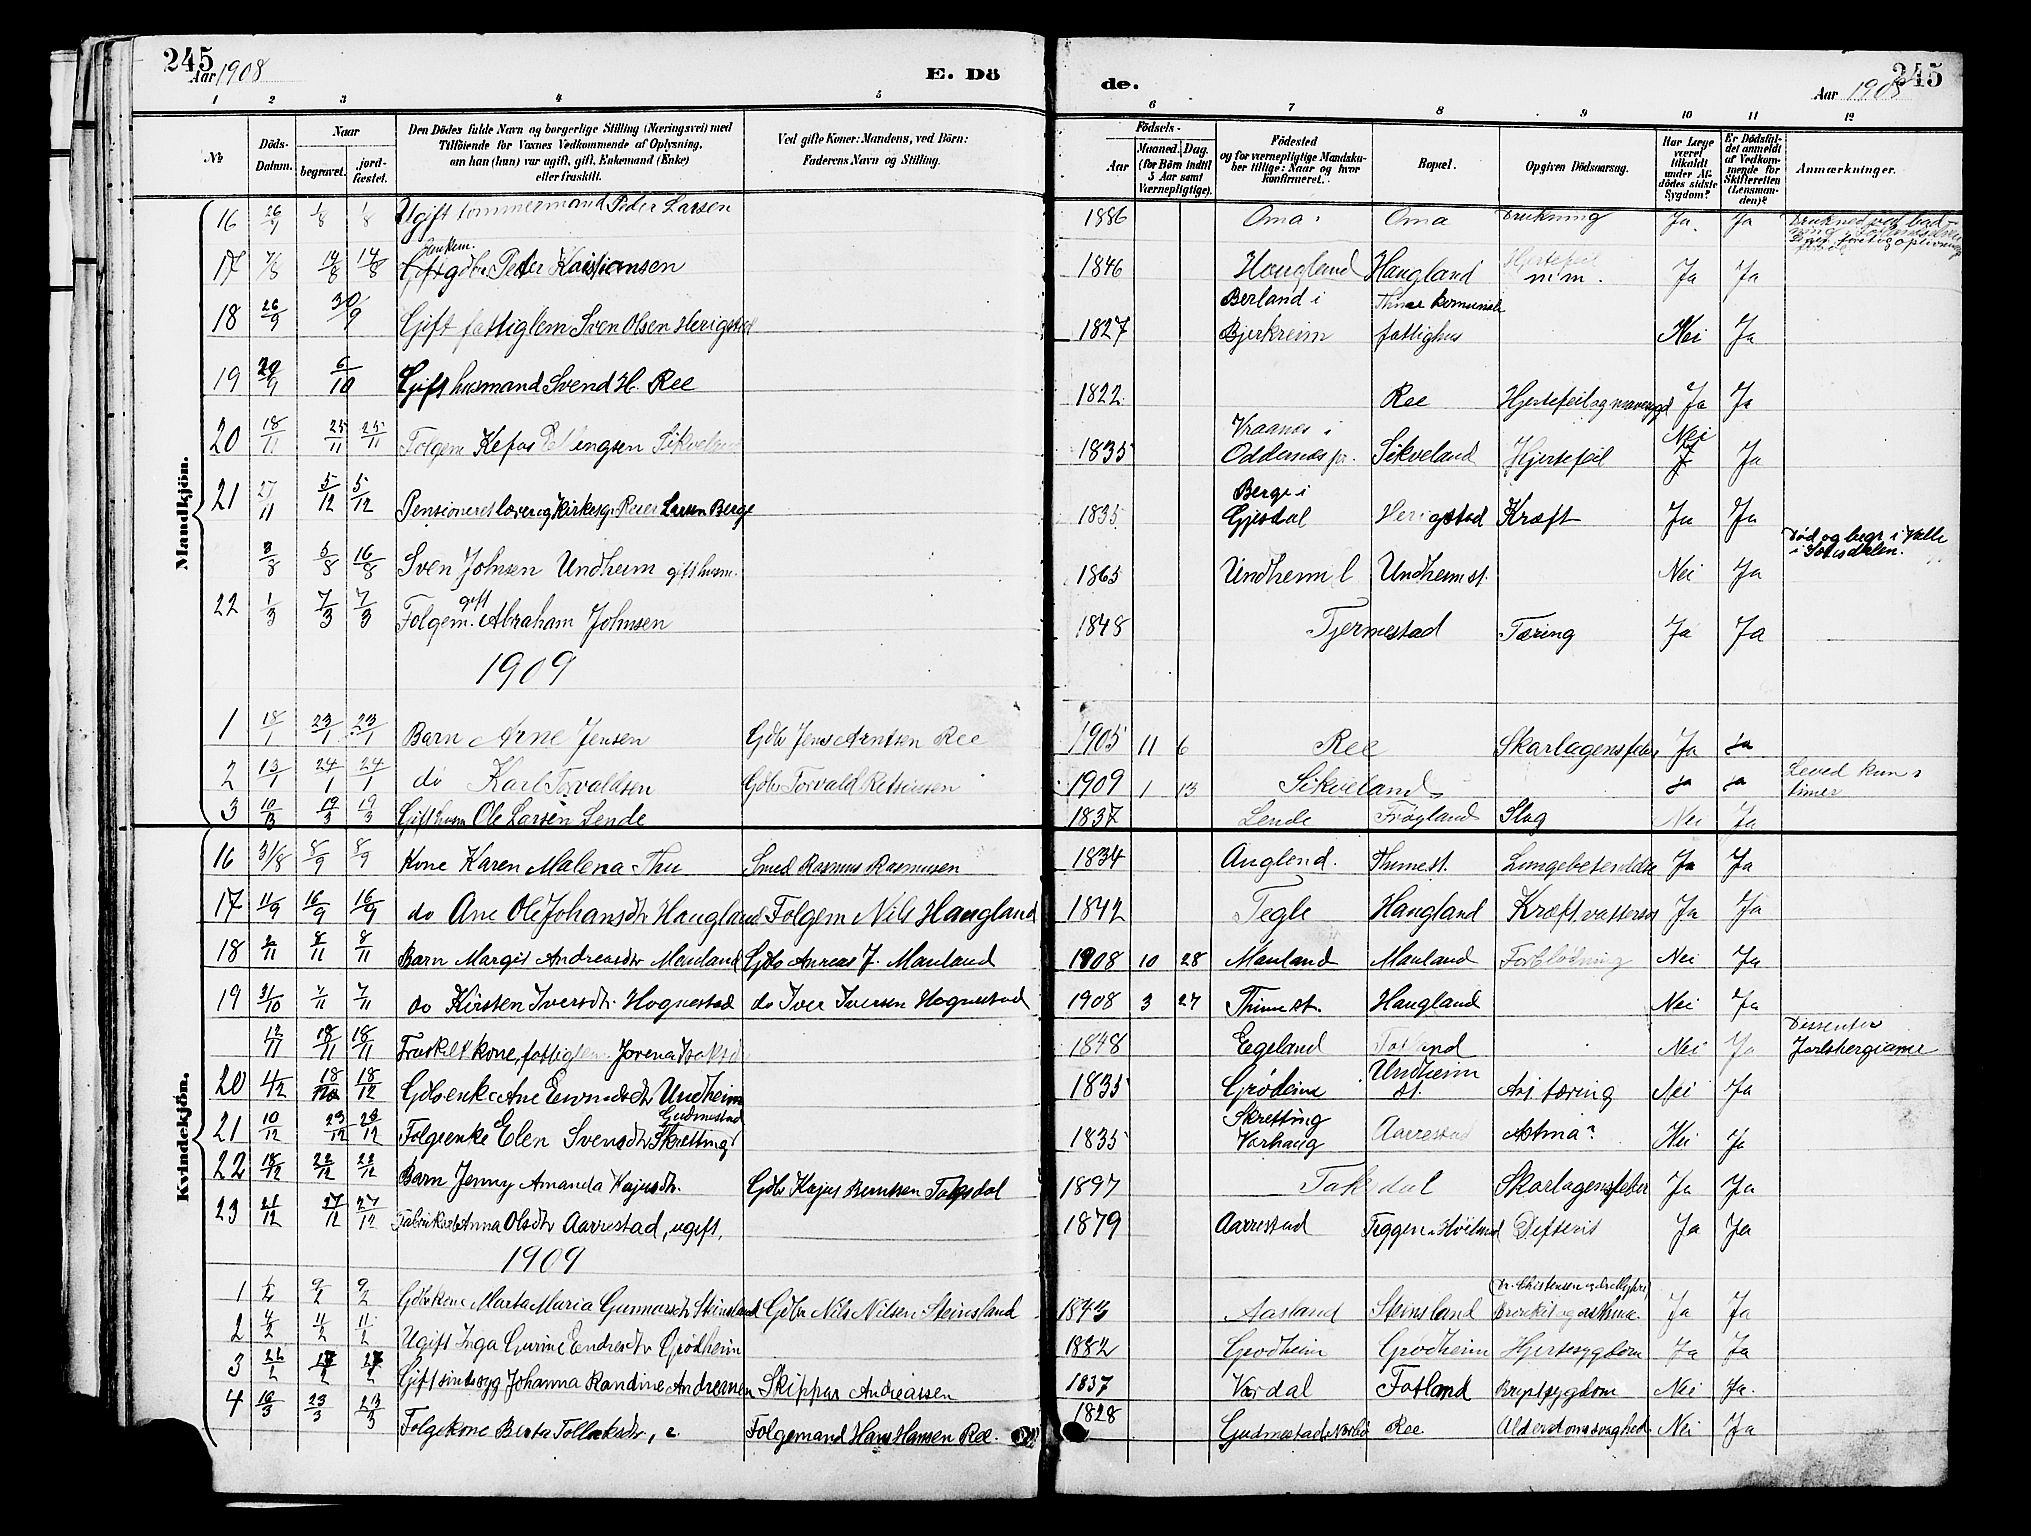 245 245
Aar 1908 E. Dö de. Aar 1908
1 2 3 4 5 6 7 8 9 10 11 12
№ Döds-Datum. Naar begravet. jord-fæstet. Den Dödes fulde Navn og borgerlige Stilling (Næringsvei) med Tilföiende for Voxnes Vedkommende af Oplysning, om han (hun) var ugift, gift, Enkemand (Enke) eller fraskilt. Ved gifte Koner: Mandens, ved Börn: Faderens Navn og Stilling. Födsels- Aar Maaned. Dag. (for Börn indtil 5 Aar samt Værnepligtige). Födested og for værnepligtige Mandskaber tillige: Naar og hvor konfirmeret. Bopæl. Opgiven Dödsaarsag. Har Læge været tilkaldt under Afdödes sidste Sygdom? Er Dödsfaldet anmeldt af Vedkommende for Skifteretten (Lensmanden)? Anmærkninger.
Mandkjön.
16 26/7 1/8 1/8 Ugift tømmermand Peder Larsen 1886 Oma Oma Drukning Ja Ja
17 7/8 14/8 14/8 Enkem. Gdbr Peder Kristiansen 1846 Haugland Haugland Hjertefeil m.m. Ja Ja
18 26/9 30/9 Gift fattiglem Sven Olsen Herigstad 1827 Berland i Bjerkreim Thime Komunale fattighus Nei Ja
19 29/9 6/10 Gift husmand Svend H. Ree 1822 Ree Hjertefeil og mavesygd Ja Ja
20 18/11 25/11 25/11 Folgem Kefas Sikveland 1835 i Oddernes pr. Sikveland Hjertefeil Nei Ja
21 27/11 5/12 5/12 Pensioneret lærer og Kirkesg. Reier Larsen Berge 1835 Berge i Gjesdal Herigstad Kræft Ja Ja
3/8 5/8 16/8 Sven Johnsen Undheim gift husm. 1865 Undheim l Undheim st. Nei Ja Død og begr i Valle i Setesdalen.
22 1/3 7/3 7/3 Folgem. gift Abraham Johnsen 1848 Tjermestad Tæring Ja Ja
1909
1 18/1 23/1 23/1 Barn Arne Jensen Gdbr Jens Arntsen Ree 1905 11 6 Ree Skarlagensfeber Ja Ja
2 13/1 24/1 24/1 do Karl Torvaldsen Gdbr Torvald 1909 1 13 Sikveland Ja Ja Leved kun timer
3 10/3 19/3 19/3 Gift husm Ole Larsen Lende 1837 Lende Frøyland Slag Nei Ja
Kvindekjön.
16 31/8 8/9 8/9 Kone Karen Malena Thu Smed Rasmus Rasmusen 1834 Anglend. Thime st. Lungebetendelse Ja Ja
17 11/9 16/9 16/9 do Ane Ole Johansdtr Haugland Folgem Nils Haugland 1842 Tegle Haugland Kræft Ja Ja
18 2/11 8/11 8/11 Barn Margit Andreasdtr Mauland Gdbr Anreas J. Mauland 1908 10 28 Mauland Mauland Forblødning Nei Ja
19 31/10 7/11 7/11 do Kirsten Iversdtr. Hognestad do Iver Iversen Hognestad 1908 3 27 Thime st. Haugland Nei Ja
12/11 18/11 18/11 Fraskilt kone, fattiglem Jorena 1848 Egeland Fotland Nei Ja Dissenter Jarlsbergianer
20 4/12 18/12 18/12 Gdbrenke Ane Undheim 1835 Grødeim Undheim st. tæring Nei Ja
21 10/12 23/12 23/12 Folgeenke Elen Svensdtr Skretting Gudmestad 1835 Skretting Varhaug Aarrestad Astma? Nei Ja
22 18/12 22/12 22/12 Barn Jenny Amanda Kajusdtr. Gdbr Kajus Berntsen Taksdal 1897 Taksdal Skarlagensfeber Ja Ja
23 21/12 27/12 27/12 Anna Olsdtr Aarrestad, ugift, 1879 Aarrestad Teggen i Høiland Difterit Ja Ja
1909
1 2/2 9/2 9/2 Gdbrkone Marta Maria Gunnarsdtr Steinsland Gdbr Nils Nilsen Steinsland 1843 Aasland Steinsland Bronkit og asthma. Ja Ja
2 4/2 11/2 11/2 Ugift Inga Gurine Endresdtr Grødheim 1882 Grødheim Grødheim Hjertesygdom Ja Ja
3 Gift sindssyg Johanna Randine Andreasen Skipper Andreassen 1837 Vardal Fotland Brystsygdom Nei Ja.
4 16/3 23/3 23/3 Folgekone Berta Tollaksdtr, Folgemand Hans Hansen Ree. 1828 Gudmestad Nærbø Ree Alderdomssvaghed Nei Ja